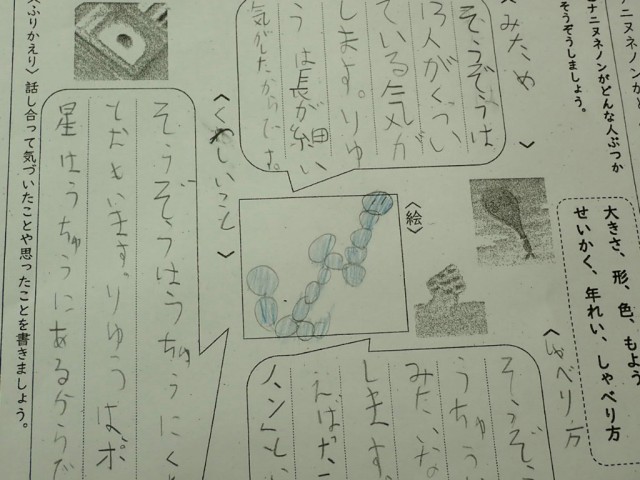 ナニヌネノンがどんな人ぶつか
そうぞうしましょう。
大きさ、形、色、もよう
せいかく、年れい、しゃべり方
〈みため〉
そうぞうは
13人がくっつい
ている気が
します。りゆ
うは長が細い
気がしたからです。
〈しゃべり方〉
そうぞ
うちゅう
みたいな
します。
えばった
〈絵〉
〈くわしいこと〉
そうぞうはうちゅうにく
とおもいます。りゆうは、ポ
星はうちゅうにあるからだ
〈ふりかえり〉 話し合って気づいたことや思ったことを書きましょう。